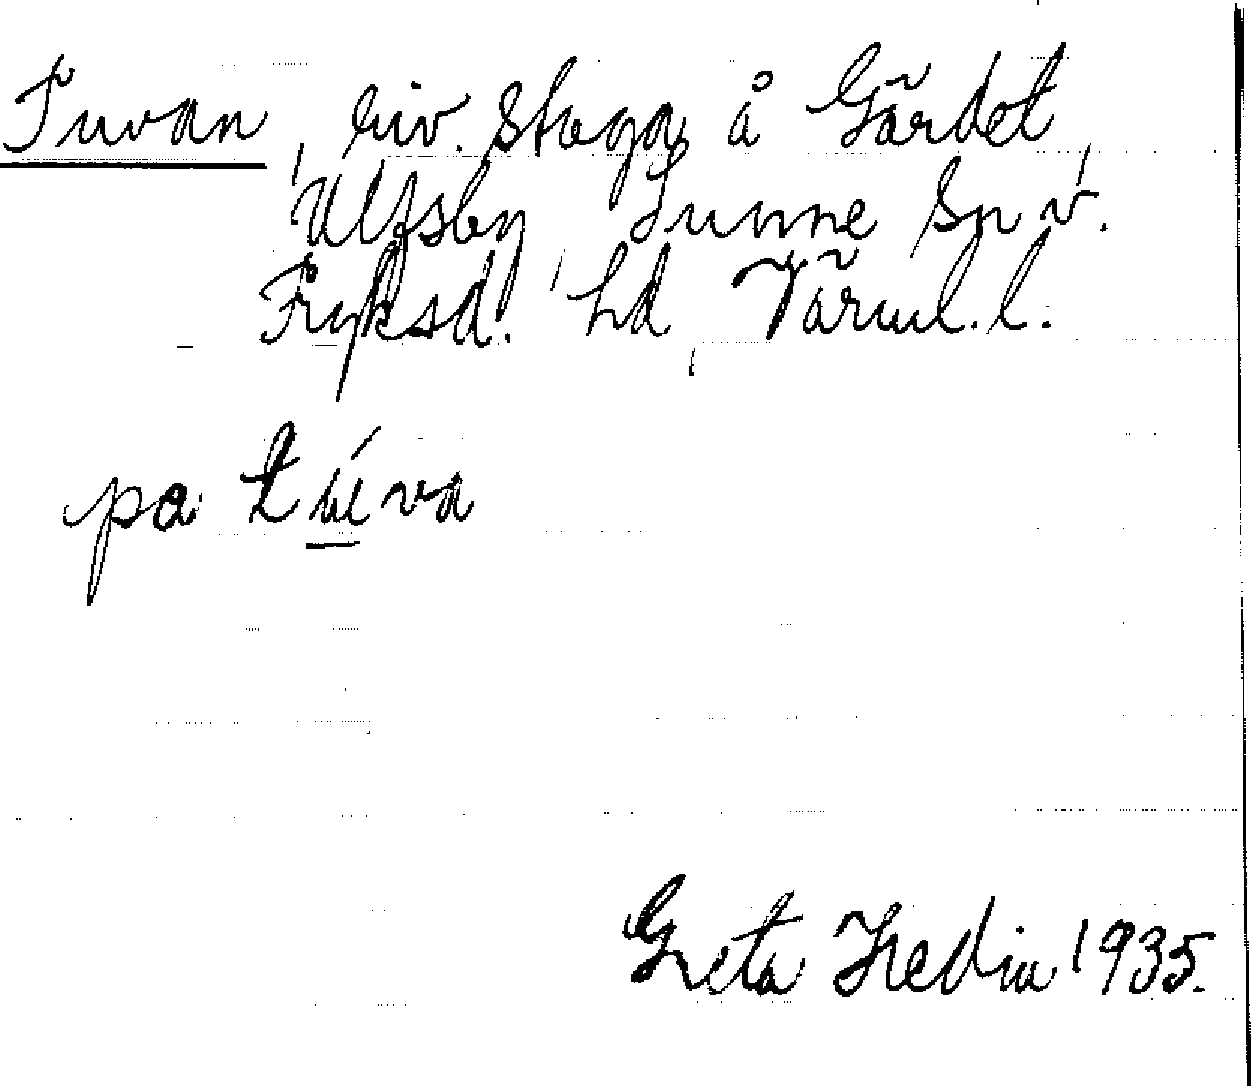 Tuvan, riv. stuga å Gärdet,
Ulfsby, Sunne Sn V.
Fryksd. hd, Värml. l.
pa túva
Greta Hedin 1935.